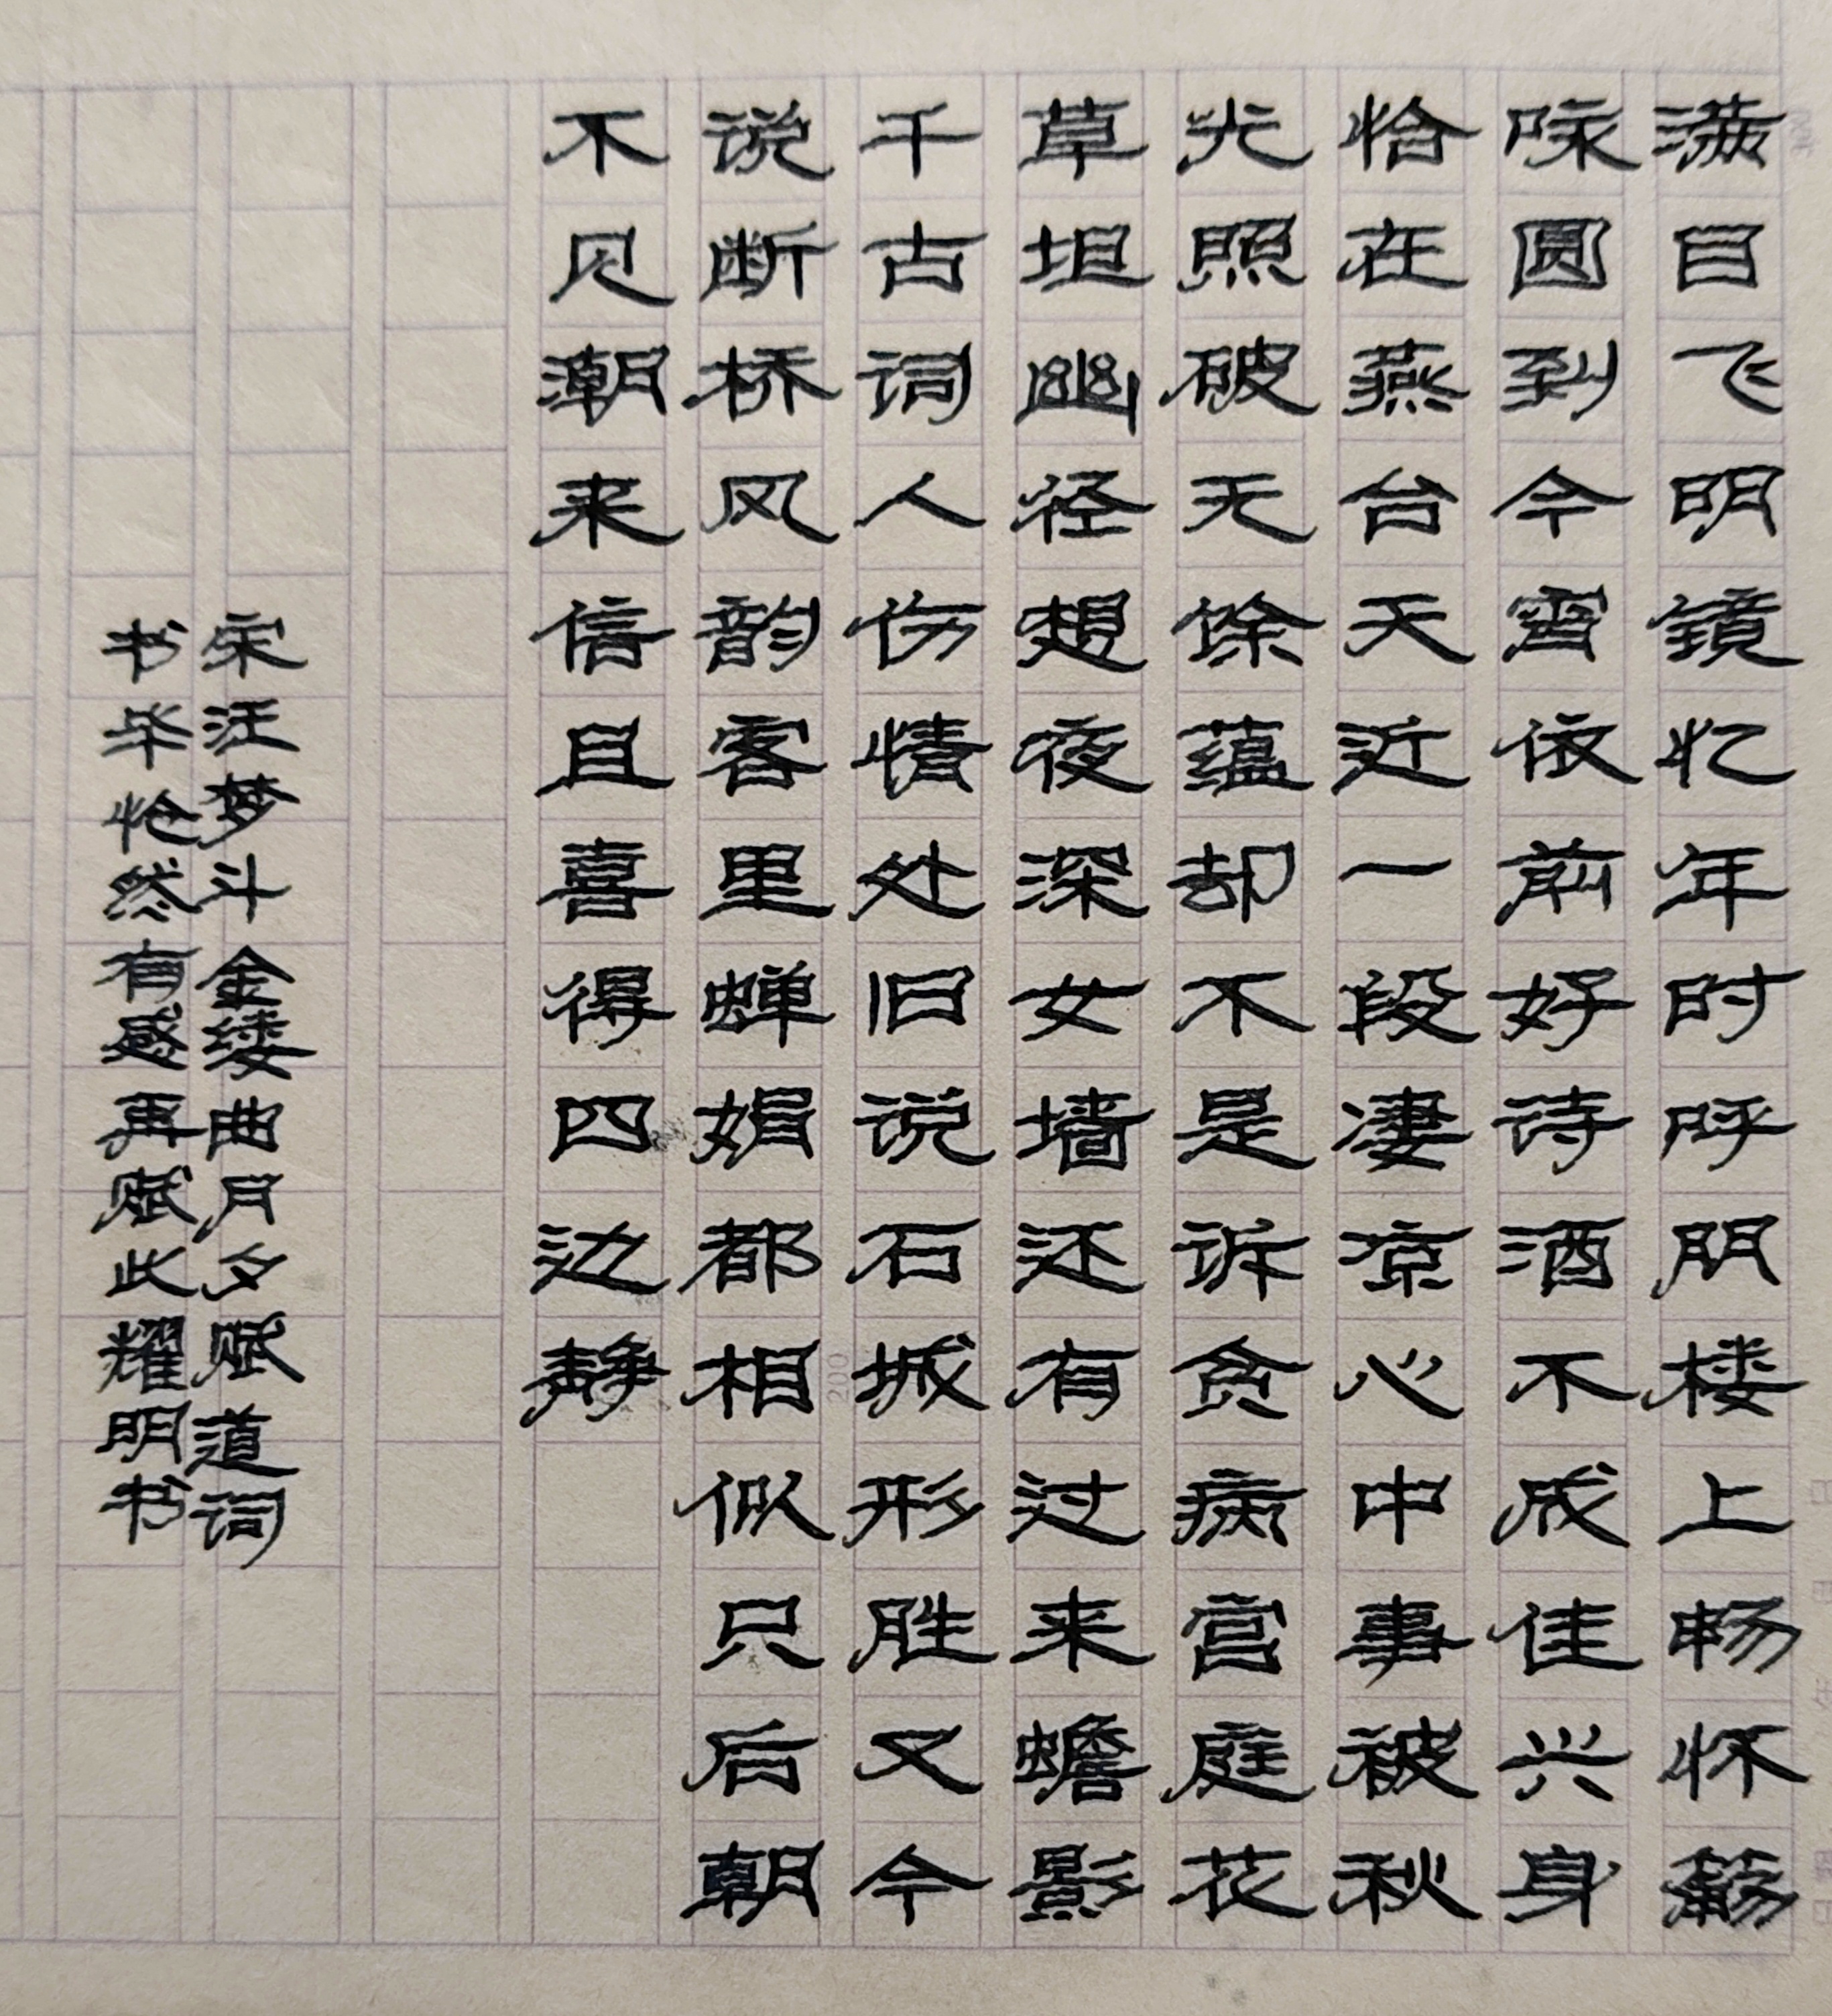 满目飞明镜忆年时呼朋楼上畅怀觞
咏圆到今宵依前好诗酒不成佳兴身
恰在燕台天近一段凄凉心中事被秋
光照破无馀蕴却不是诉贫病宫庭花
草坦幽径想夜深女墙还有过来蟾影
千古词人伤情处旧说石城形胜又今
说断桥风韵客里蝉娟都相似只后朝
不见潮来信且喜得四边静
宋汪梦斗金缕曲月夕赋道词
书毕怆然有感再赋此耀明书
200